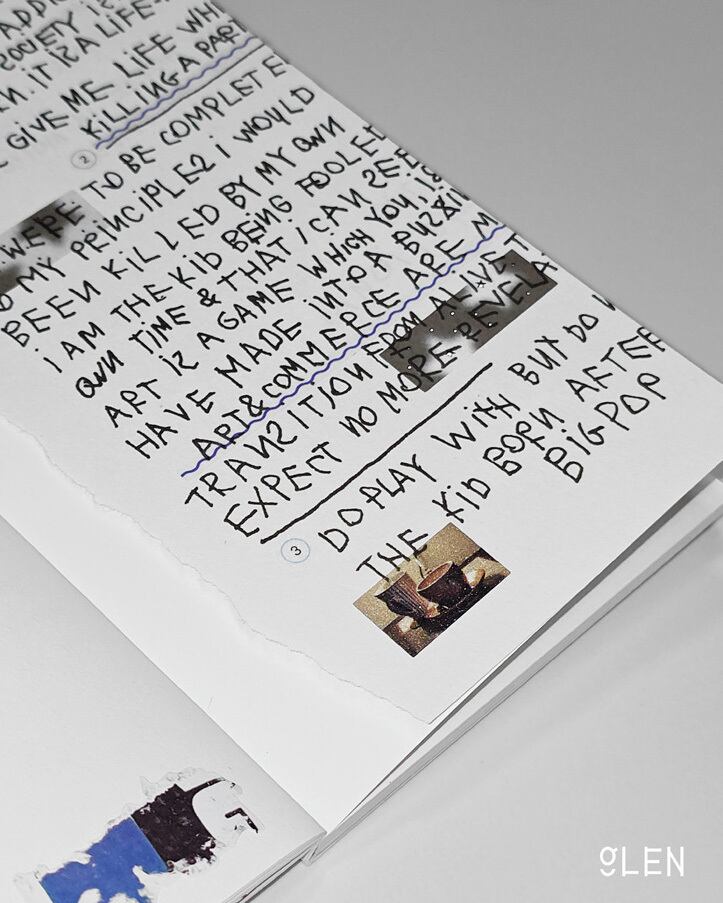 SOCIETY IS
N. IT IS A LIFE
GIVE ME LIFE WH
KILLING A PAR
2
WERE TO BE COMPLETE
MY PRINCIPLES I WOULD
BEEN KILLED BY MY OWN
I AM THE KID BEING FOOLED
OWN TIME & THAT I CAN SEE
ART IS A GAME WHICH YOU, IS
HAVE MADE INTO A
ART & COMMERCE ARE M
TRANSITION FROM ALIVE T
EXPECT NO MORE REVELA
3
DO PLAY WITH BUT DO N
THE KID BORN AFTER
BIG POP
gLEN